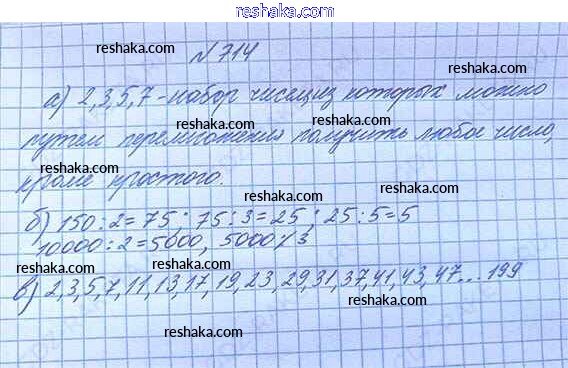 reshaka.com
reshaka.com
№ 714
reshaka.com
reshaka.com
а) 2,3,5,7 - набор чисел, из которых можно
reshaka.com
reshaka.com
путем перемножения получить любое число,
reshaka.com
кроме простого.
reshaka.com
б) 150:2=75; 75:3=25; 25:5=5
reshaka.com
10000:2=5000, 5000⁒3
reshaka.com
reshaka.com
в) 2,3,5,7,11,13,17,19,23,29,31,37,41,43,47...199
reshaka.com
reshaka.com